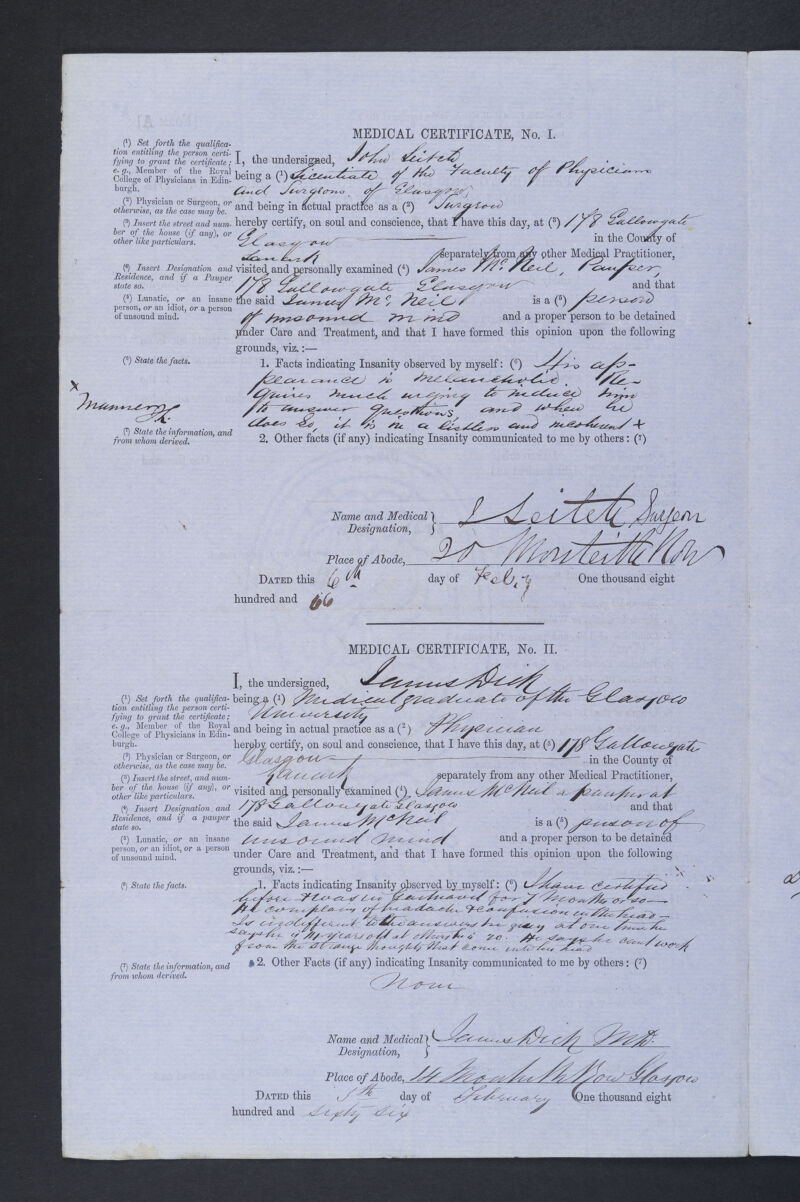 MEDICAL CERTIFICATE, No. I.
(1) Set forth the qualifica-
tion entitling the person certi-
fying to grant the certificate;
e. g., Member of the Royal
College of Physicians in Edin-
burgh.
(2) Physician or Surgeon, or
otherwise, as the case may be.
(3) Insert the street and num-
ber of the house (if any), or
other like particulars.
(4) Insert Designation and
Residence, and if a Pauper
state so.
(5) Lunatic, or an insane
person, or an idiot, or a person
of unsound mind.
(6) State the facts.
x
Manner JL.
(7) State the information, and
from whom derived.
I, the undersigned, John Leitch
being a (1) Licentiate of the Faculty of Physicians
and Surgeons of Glasgow,
and being in actual practice as a (2) Surgeon
hereby certify, on soul and conscience, that I have this day, at (3) 178 Gallowgate
Glasgow in the County of
Lanark separately from any other Medical Practitioner,
visited and personally examined (4) James McNeil, Pauper,
178 Gallowgate Glasgow and that
the said James McNeil is a (5) person
of unsound mind and a proper person to be detained
under Care and Treatment, and that I have formed this opinion upon the following
grounds, viz.:—
1. Facts indicating Insanity observed by myself: (6) His ap-
pearance is melancholic. Re-
quires much urging to induce him
to answer questions, and when he
does so, it is in a listless and incoherent x
2. Other facts (if any) indicating Insanity communicated to me by others: (7)
Name and Medical
Designation, J Leitch Surgeon
Place of Abode, 20 Monteith Row
DATED this 6th day of Feby One thousand eight
hundred and 66
MEDICAL CERTIFICATE, No. II.
(1) Set forth the qualifica-
tion entitling the person certi-
fying to grant the certificate;
e. g., Member of the Royal
College of Physicians in Edin-
burgh.
(2) Physician or Surgeon, or
otherwise, as the case may be.
(3) Insert the street, and num-
ber of the house (if any), or
other like particulars.
(4) Insert Designation and
Residence, and if a pauper
state so.
(5) Lunatic, or an insane
person, or an idiot, or a person
of unsound mind.
(6) State the facts.
(7) State the information, and
from whom derived.
I, the undersigned, James Dick
being a (1) Medical graduate of the Glasgow
University
and being in actual practice as a (2) Physician
hereby certify, on soul and conscience, that I have this day, at (3) 178 Gallowgate
Glasgow in the County of
Lanark separately from any other Medical Practitioner,
visited and personally examined (4) James McNeil a pauper at
178 Gallowgate Glasgow and that
the said James McNeil is a (5) person of
unsound mind and a proper person to be detained
under Care and Treatment, and that I have formed this opinion upon the following
grounds, viz.:—
1. Facts indicating Insanity observed by myself: (6) I have certified
before & was in Gartnavel for 7 months or so—
He complains of headache & confusion in the head—
Is indifferent to the answers he gives at one time he
says he is 14 years old at others 20. He says he cant work
from the strange thoughts that come into his head
2. Other Facts (if any) indicating Insanity communicated to me by others: (7)
None
Name and Medical
Designation, James Dick MD.
Place of Abode, 14 Monteith Row Glasgow
DATED this day of February One thousand eight
hundred and sixty six